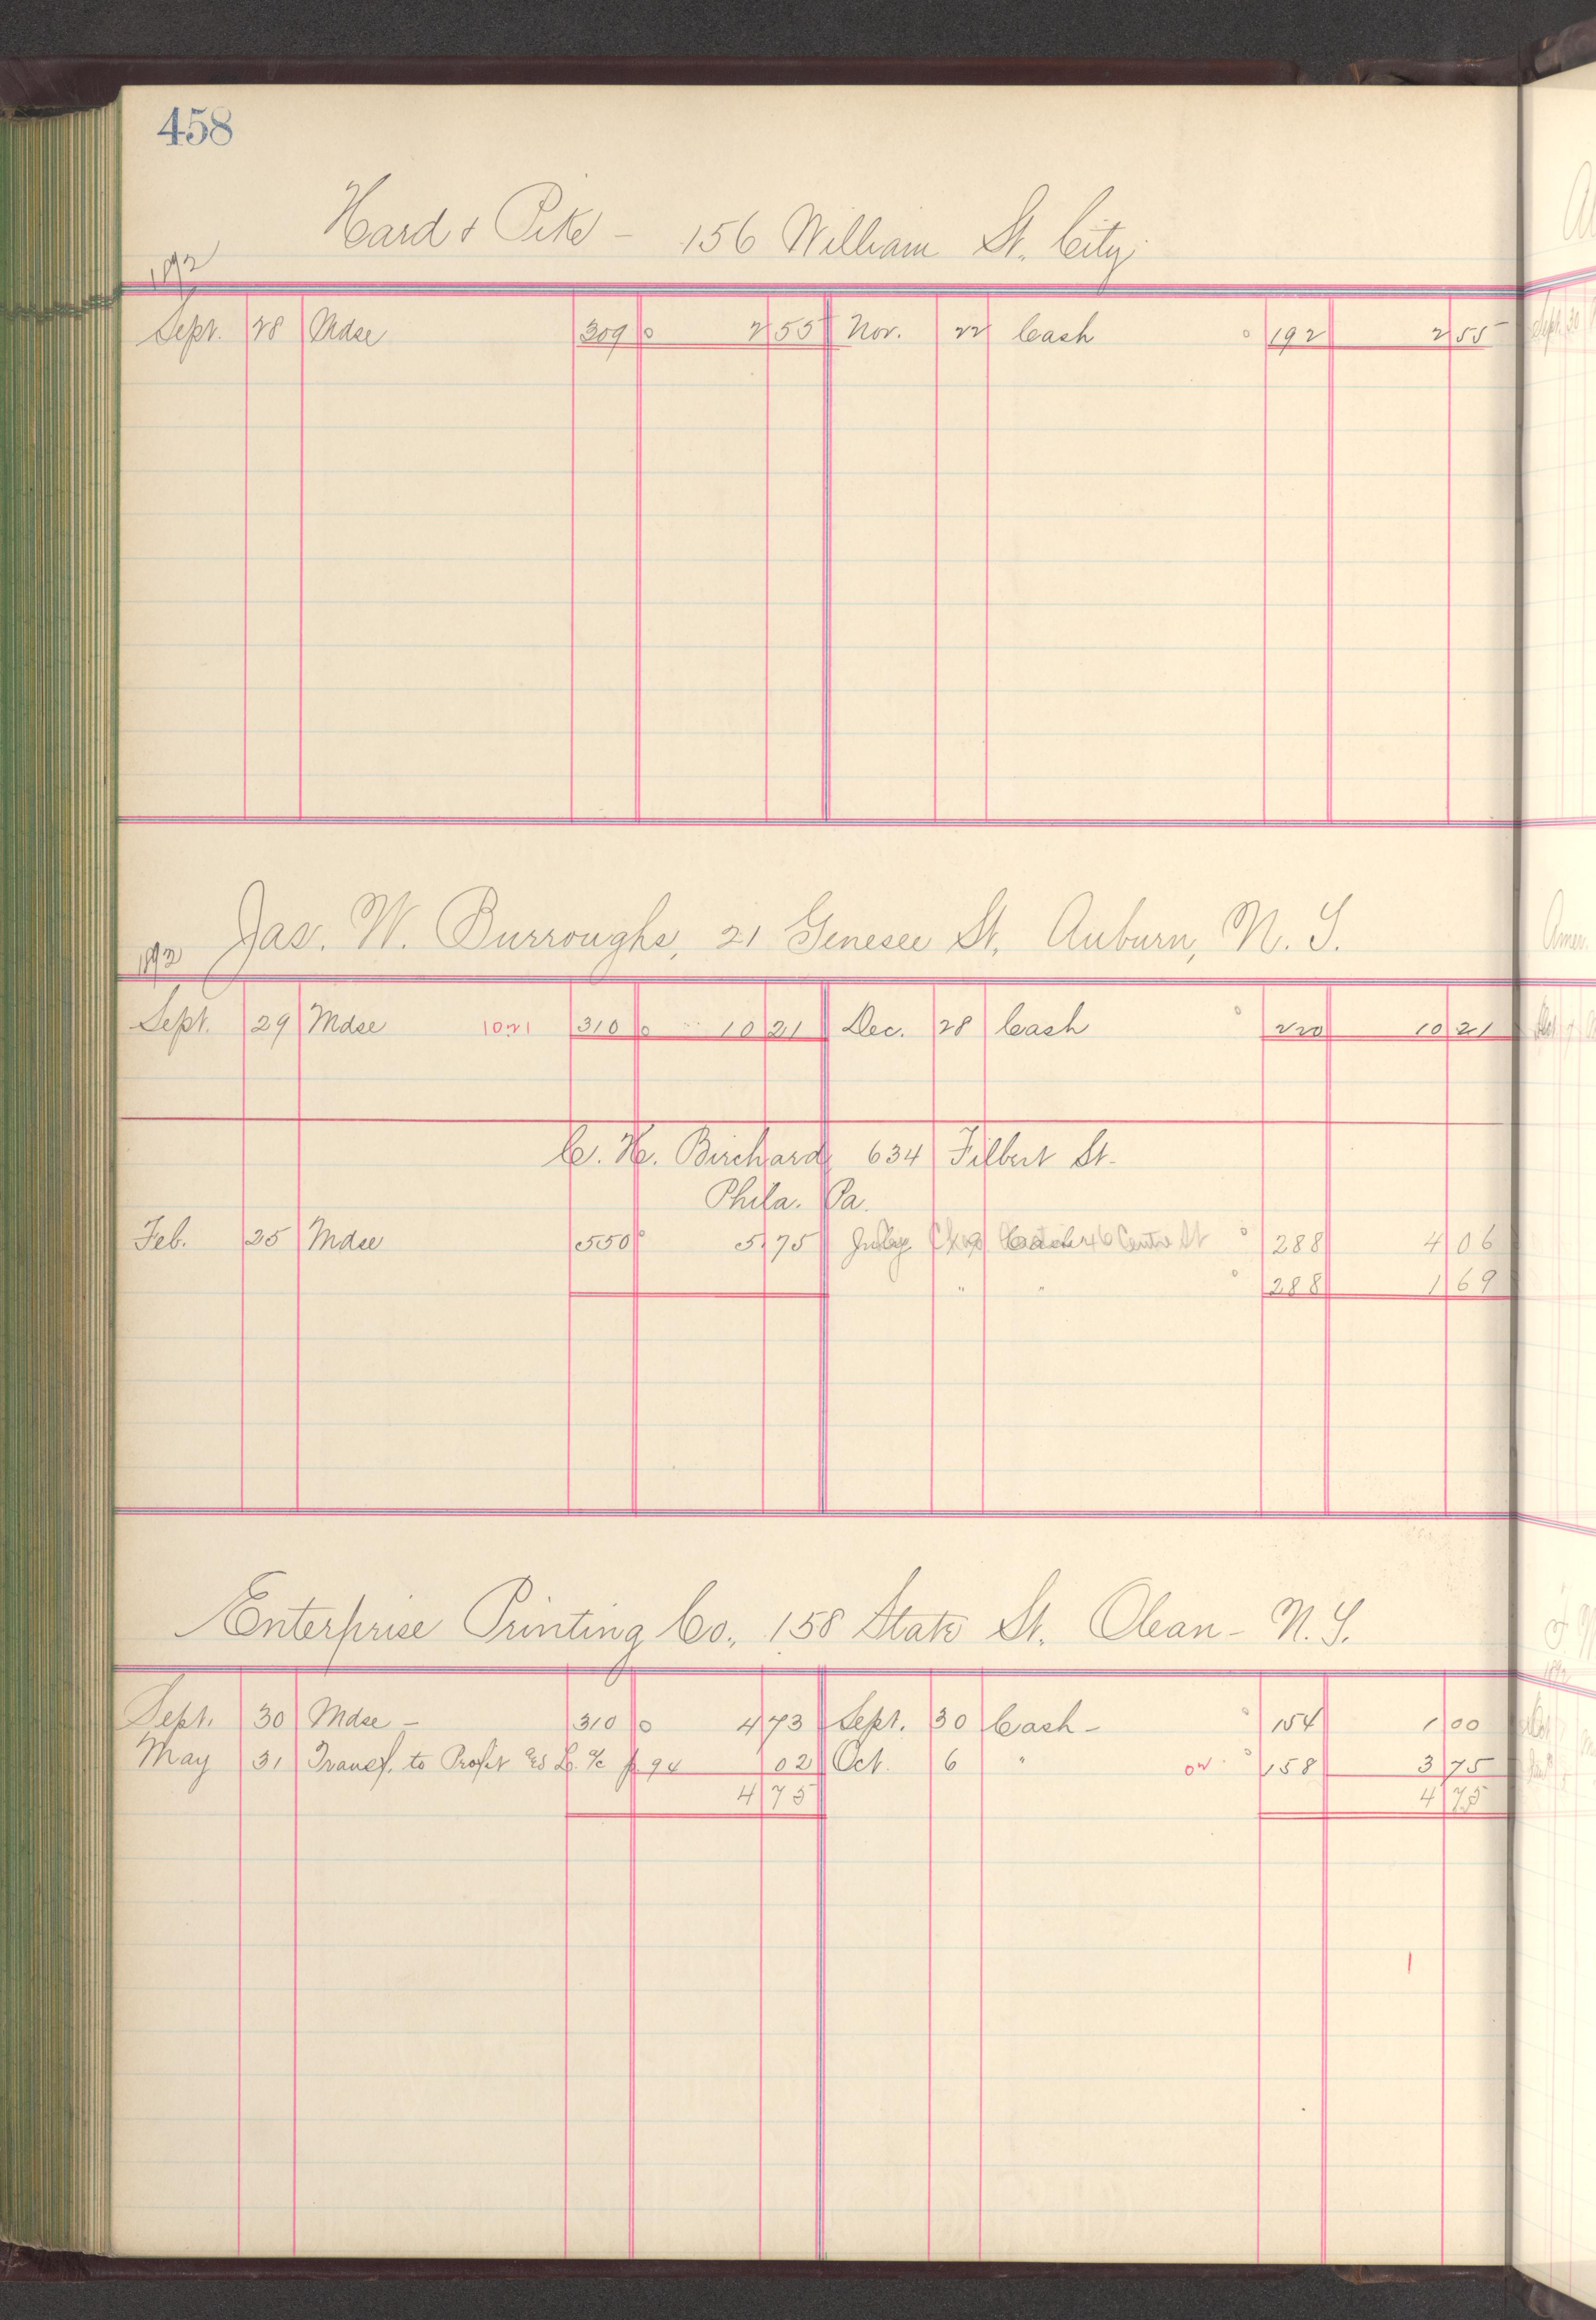 458
Hard & Pike - 156 William St. City
192
Sept. 28 Mdse 309 2 55 Nov. 22 Cash 192 2 55
Jas. W. Burroughs, 21 Genesee St. Auburn, N. Y.
192
Sept. 29 Mdse 1021 310 10 21 Dec. 28 Cash 220 10 21
C. H. Burchard, 634 Filbert St.
Phila. Pa.
Feb. 25 Mdse 550 5 75 July 288 4 06
" " 288 1 69
Enterprise Printing Co., 158 State St. Olean - N. Y.
Sept. 30 Mdse - 310 4 73 Sept. 30 Cash - 154 1 00
May 31 Transf. to Profit & L. a/c p. 94 02 Oct. 6 " 158 3 75
4 75 4 75